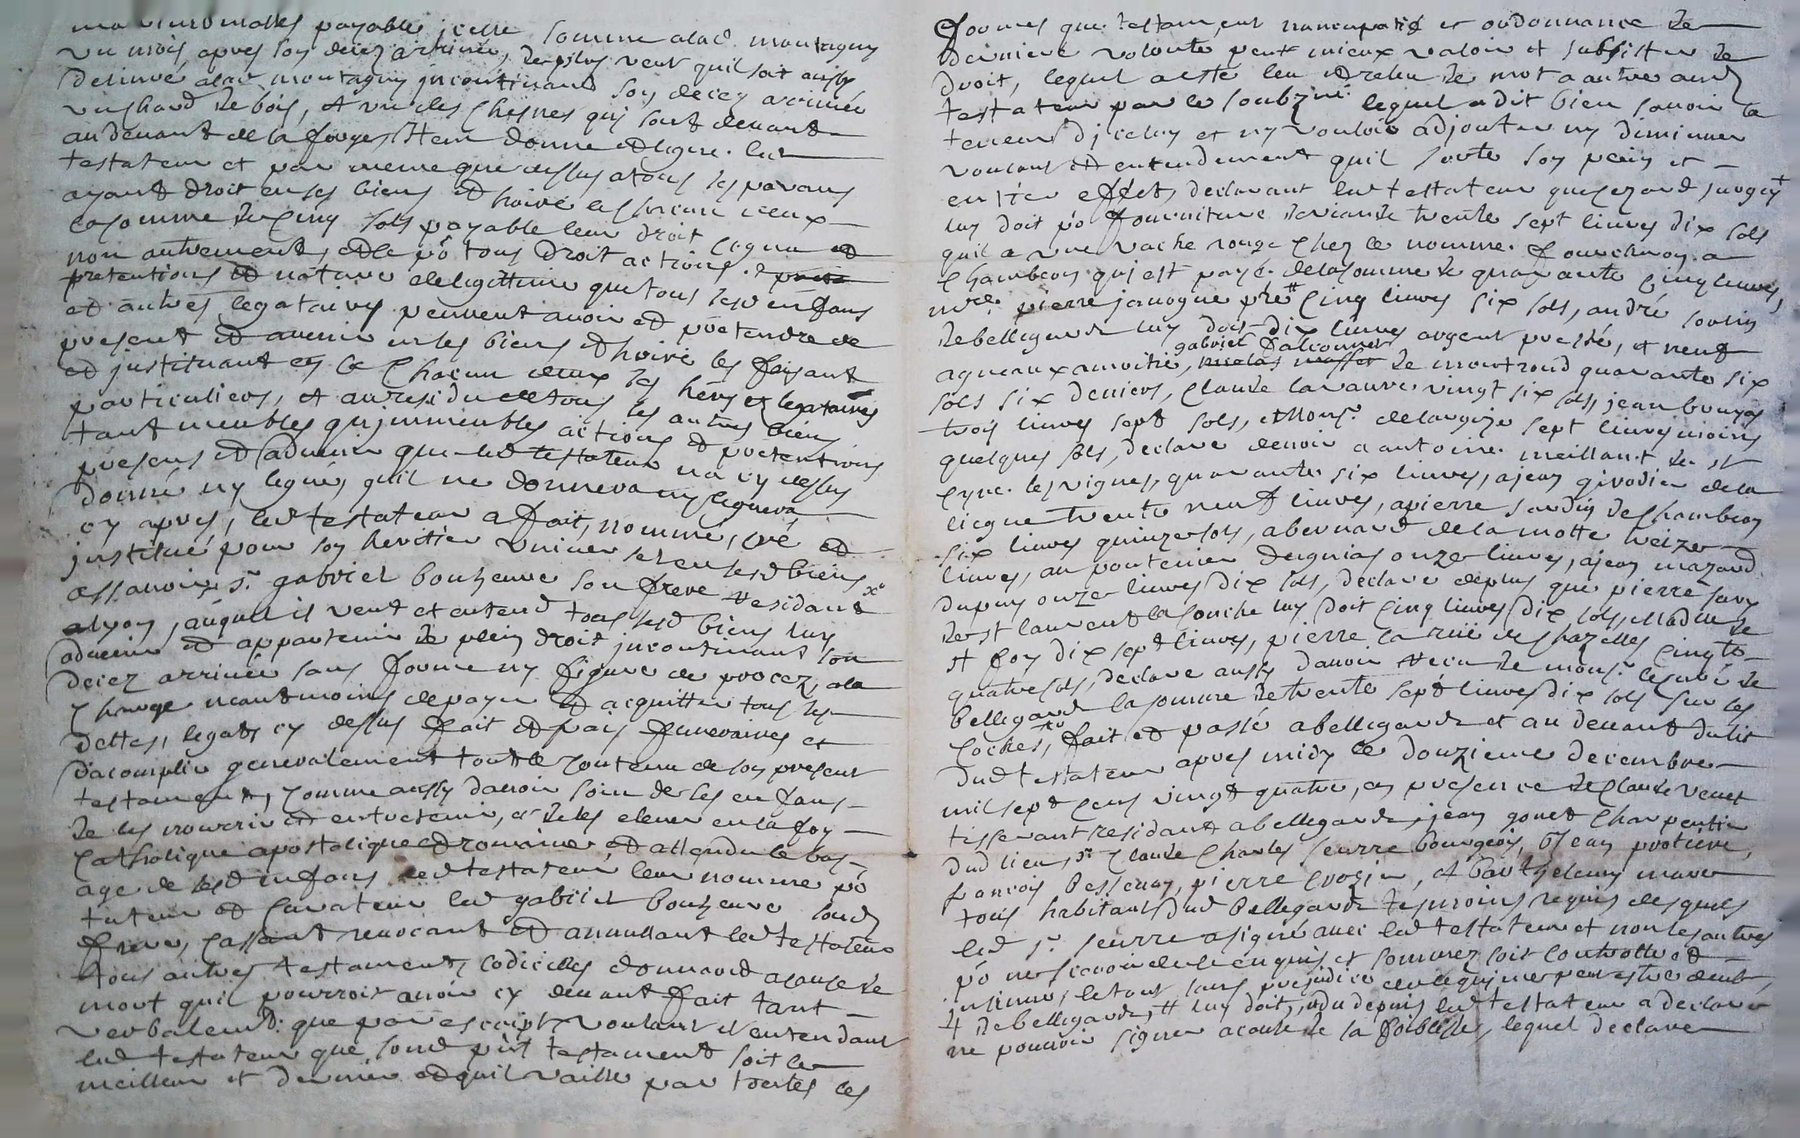 payable icelle somme alad. montagny
un mois apres son decez arrivée, de plus veut quil soit aussy
delivré alad. montagny incontinand son decez arrivée
un chard de bois, et un des chesnes qui sont devant
au devant de la forge, Item donne et legue led
testateur et par meme que dessus a tous les parans
ayant droit en ses biens et hoirie a chacun deux
la somme de cinq sols payable leur droit cognu et
non autrement, et ce po tous droit actions
pretentions et nature de legittime que tous lesd enfans
et autres legataires peuvent avoir et pretendre
present et avenir en ses biens et hoirie les faisant
et instituant en ce chacun deux ses hers et legataires
particuliers, et au residu de tous ses autres biens
tant meubles qu'immeubles actions et pretentions
presens et advenir que led testateur na cy dessus
donné ny legué, quil ne donnera ny leguera
cy apres, led testateur a fait, nommé, créé et
institué pour son heritier universel en sesd biens
assavoir sr. gabriel bouzeuve son frere residant
a lyon, auquel il veut et entend tous sesd biens luy
advenir et appartenir de plein droit incontinant son
decez arrivée sans forme ny figure de procez, a la
charge neantmoins de payer et acquitter tous ses
dettes, legats cy dessus fait et frais funeraires et
dacomplir generalement tout le contenu de son present
testament, comme aussy davoir soin de ses enfans
de les nourrir et entretenir, et de les elever en la foy
catholique apostolique et romaine, et attendu le bas
age de sesd enfans led testateur leur nomme po
tuteur et curateur led gabriel bouzeuve sond
frere, cassant revocant et annullant led testateur
tous autres testament, codicilles donnaons a cause de
mort quil pourroit avoir cy devant fait tant
verbalemt. que par escript, voulant et entendant
led testateur que sond pnt testament soit le
meilleur et dernier et quil vaille par toutes les
formes que testament nuncupatif et ordonnance de
derniere volonté peut mieux valoir et subsister de
droit, lequel a esté leu et releu de mot a autre aud
testateur par le soubzné. lequel a dit bien scavoir la
teneur dicelluy et ny vouloir adjouter ny diminuer
voulant et entendement quil sorte son plein et
entier effet, declarant led testateur que
luy doit po fourniture de viande trente sept livres dix sols
quil a une vache rouge chez le nommé fourchery a
chambeon qui est payé de la somme de quarante cinq livres,
mre. pierre janogue pre cinq livres six sols, andré
de bellegarde luy doit dix livres argent presté, et neuf
agneaux a moitié, gabriel falconnet de montrond quarante six
sols six deniers, claude lavaure vingt six sols, jean
trois livres sept sols, et monsr. sept livres moins
quelques sols, declare devoir a antoine meillant de st
cyre les vignes, quarante six livres, a jean givodier de la
liegue trente neuf livres, a pierre jardin de chambeon
six livres quinze sols, a bernard de la motte treize
livres, au onze livres, a jean mazard
dupuy onze livres dix sols, declare deplus que pierre
de st laurent la conche luy doit cinq livres dix sols, de
st foy dix sept livres, pierre la rüe de chazelles cinq
quatre sols, declare aussy davoir receu de monsr. le curé de
bellegarde la somme de trente sept livres dix sols sur les
coches, fait et passé a bellegarde et au devant du lit
dud testateur apres midy ce douzieme decembre
mil sept cens vingt quatre, en presence de claude venet
tisserant residant a bellegarde, jean gonet charpentier
dud lieu, sr. claude charles seurre bourgeois, jean protiere,
francois bessenay, pierre crozier, et barthelemy
tous habitans dud bellegarde tesmoins requis desquels
led sr. seurre a signé avec led testateur et non les autres
po ne scavoir de ce enquis et sommez soit controllé et
insinué, le tout sans prejudice peut estre deub,
de bellegarde, luy doit, et du depuis led testateur a declaré
ne pouvoir signer a cause de sa foiblesse, lequel declare